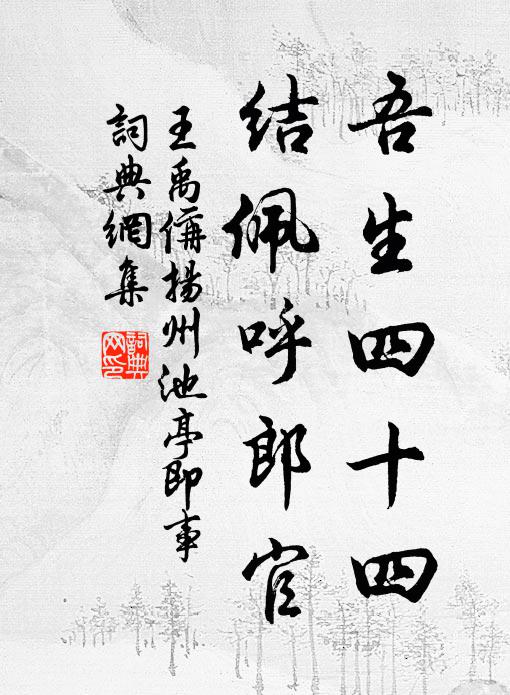 吾生四十四
結佩呼郎官
王禹偁揚州池亭即事
詞典網集
詞典網印